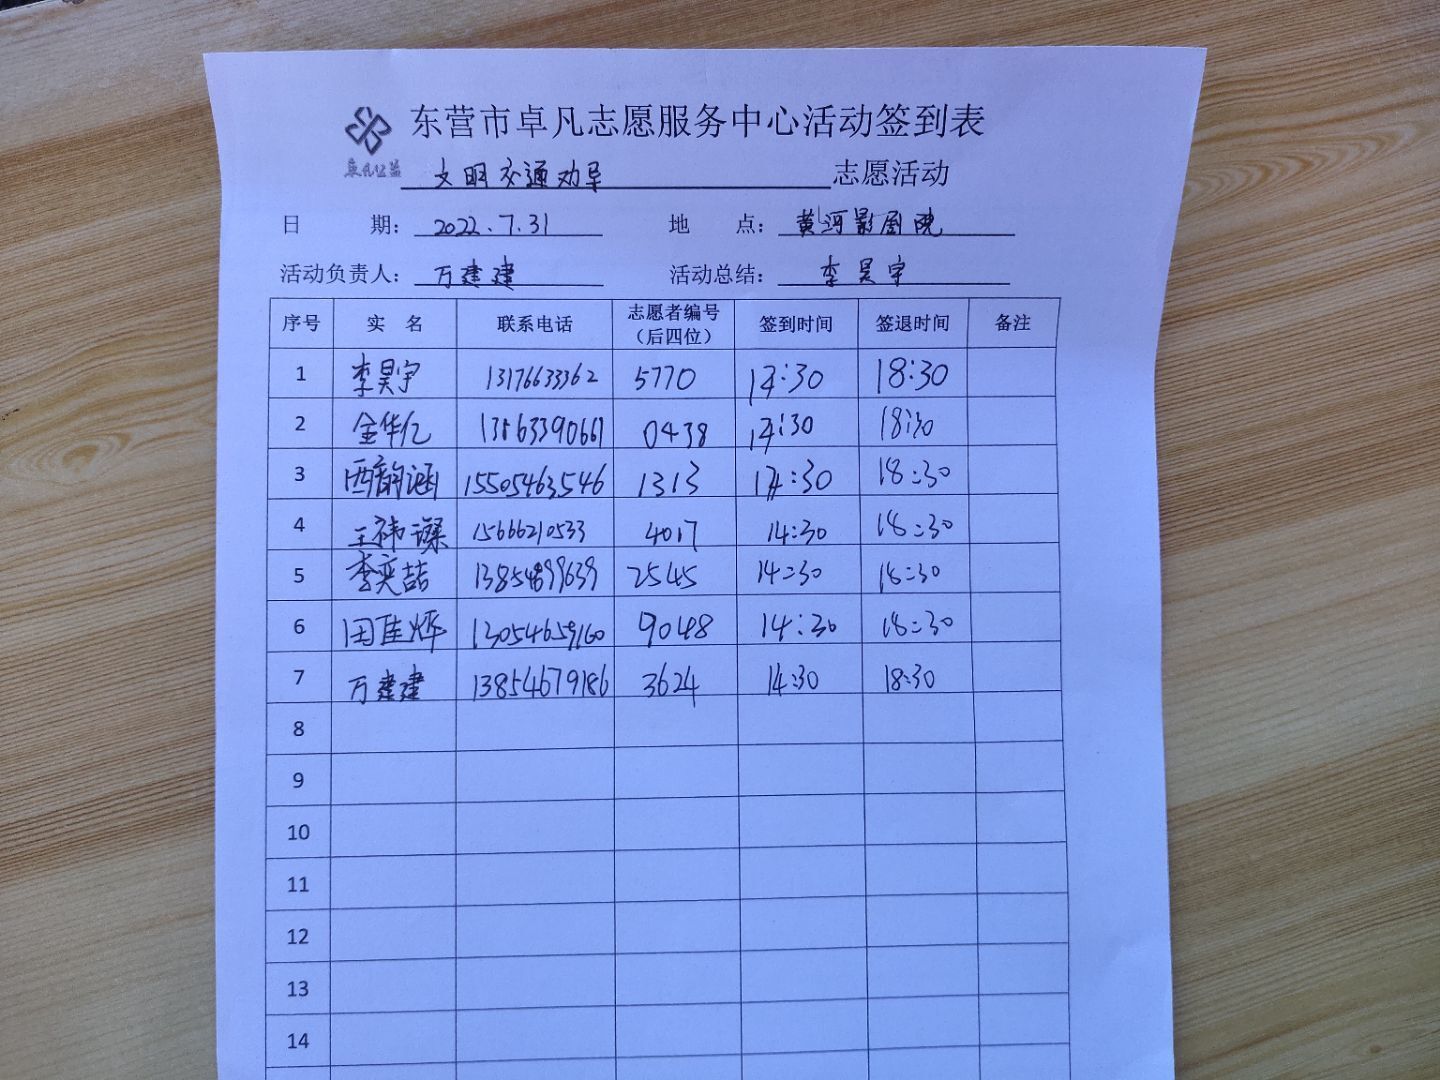 东营市卓凡志愿服务中心活动签到表
卓凡公益 文明交通劝导 志愿活动
日 期: 2022.7.31 地 点: 黄河影剧院
活动负责人: 万建建 活动总结: 李昊宇
序号 实 名 联系电话 志愿者编号(后四位) 签到时间 签退时间 备注
1 李昊宇 13176633362 5770 14:30 18:30
2 金华亿 13563390661 0438 14:30 18:30
3 西韵涵 15505463546 1313 14:30 18:30
4 王祎璨 15666210533 4017 14:30 18:30
5 李奕喆 13854899639 2545 14:30 18:30
6 田佳烨 13054659160 9048 14:30 18:30
7 万建建 13854679186 3624 14:30 18:30
8
9
10
11
12
13
14